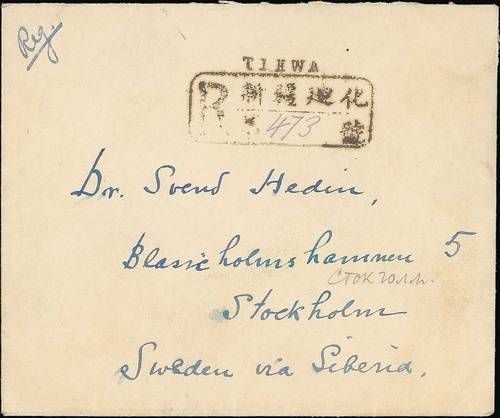 Reg.
TIHWA
R 新疆迪化
第 473 號
Dr. Svend Hedin,
Blasieholmshamnen 5
Стокголм.
Stockholm
Sweden via Siberia.